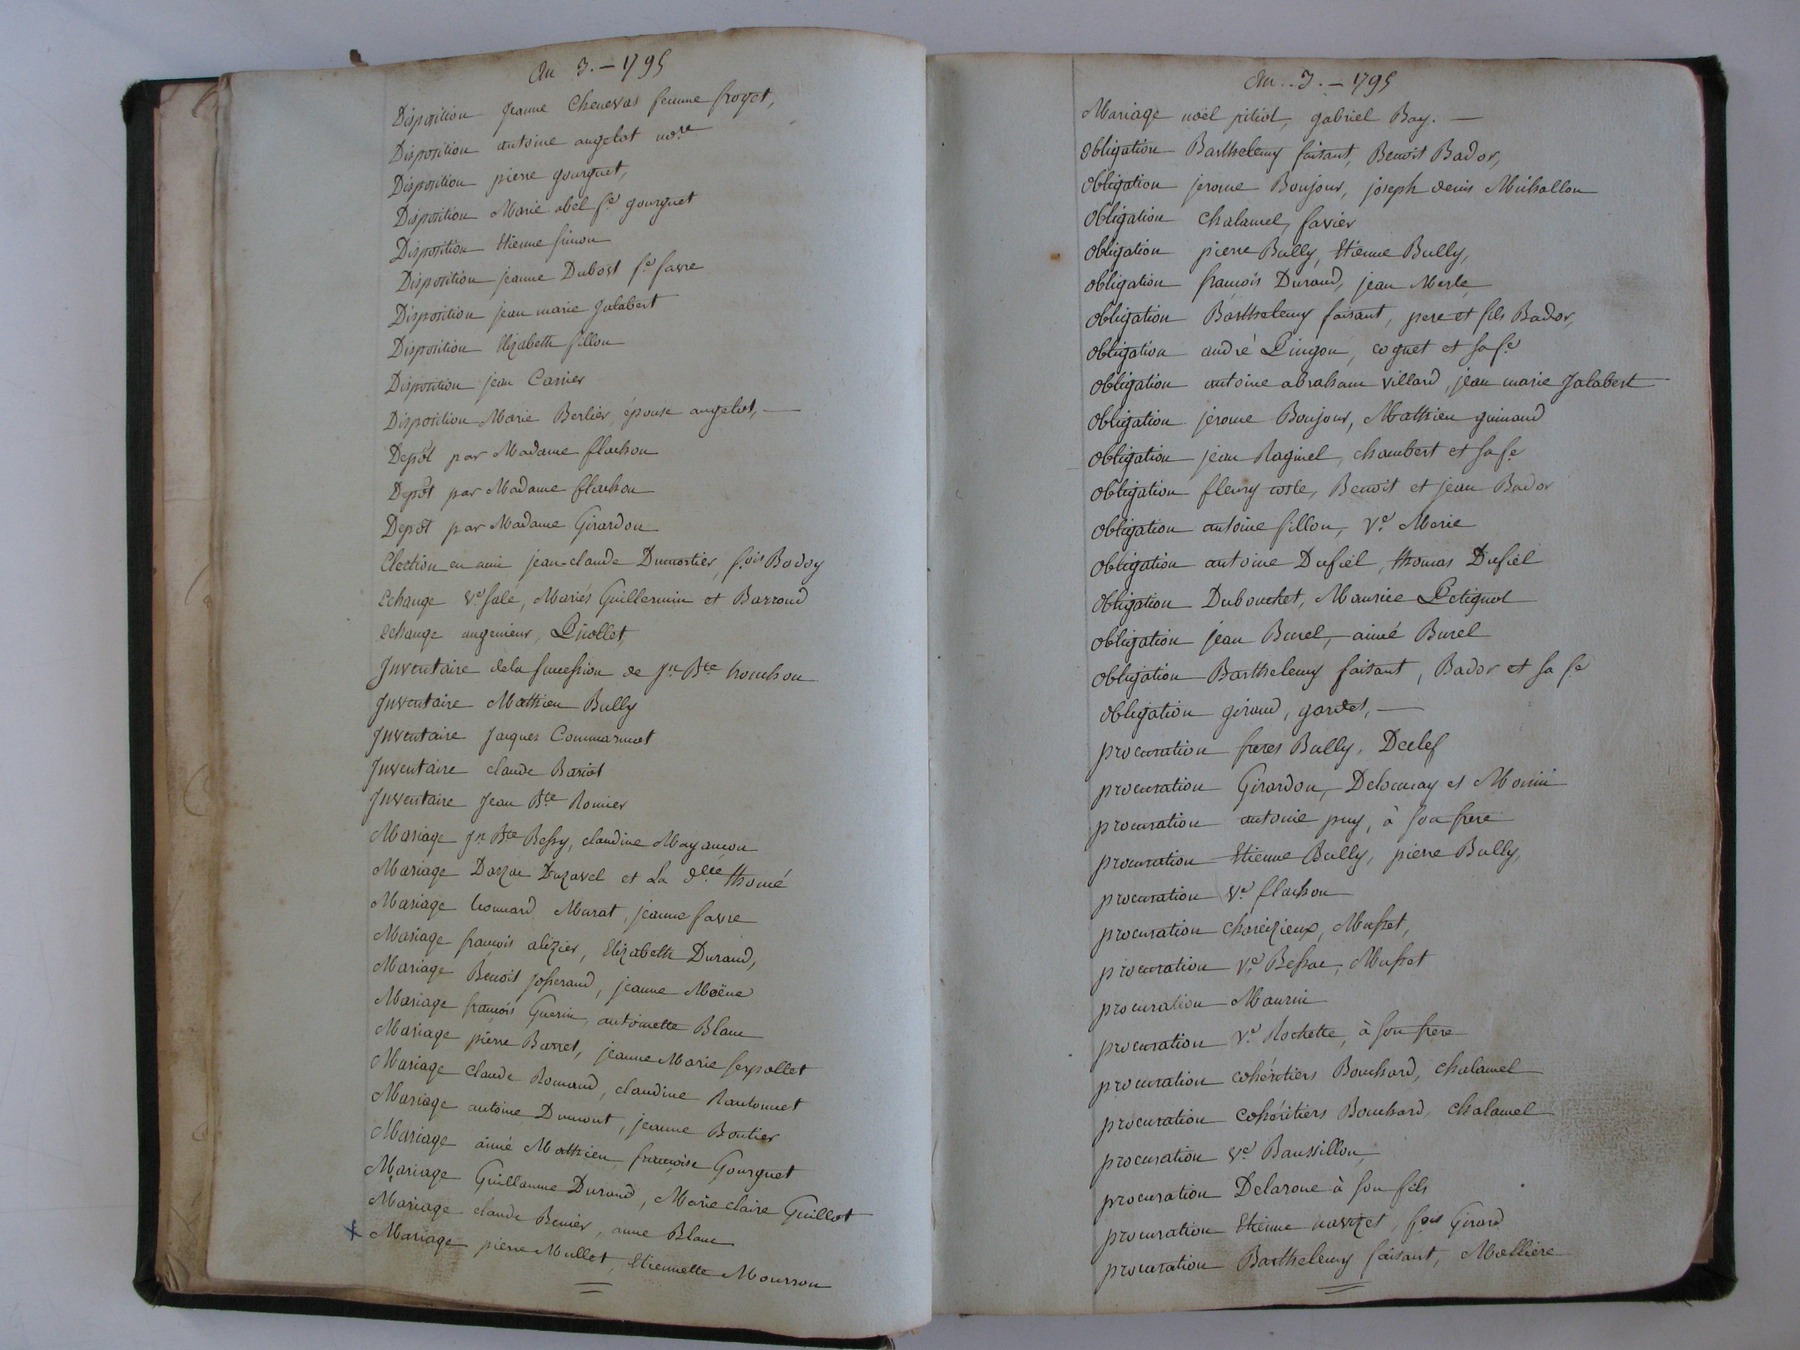 An 3. - 1795
Disposition Jeanne Chenevas femme froget,
Disposition antoine angelot no.re
Disposition pierre gourguet,
Disposition Marie abel f.e gourguet
Disposition Etienne simon
Disposition jeanne Dubost f.e favre
Disposition jean marie Jalabert
Disposition Elizabeth fillon
Disposition jean Carrier
Disposition Marie Berlier, épouse angelot, —
Depôt par Madame flachon
Depôt par Madame flachon
Depôt par Madame Girardon
Election en ami jean-claude Dumortier, f.ois Bodoy
Echange v.e sale, Mariés Guillermin et Barroud
Echange angenieur, Piollet,
Inventaire dela succession de Jn. Bte. trouchon
Inventaire Mathieu Bully
Inventaire Jacques Commarmot
Inventaire claude Bariot
Inventaire Jean Bte Romier
Mariage Jn. Bte Bessy, claudine Mayancon
Mariage Duzavel et La d.lle thomé
Mariage Leonnard Murat, jeanne favre
Mariage francois alizier, Elizabeth Durand,
Mariage Benoit josserand, jeanne Moëne
Mariage francois Guerin, antoinette Blanc
Mariage pierre Barret, jeanne Marie serpollet
Mariage claude Romand, claudine Rantonnet
Mariage antoine Dumont, jeanne Boutier
Mariage aimé Mathieu, francoise Gourguet
Mariage Guillaume Durand, Marie claire Guillot
Mariage claude Benier, anne Blanc
x Mariage pierre Mullet, Etiennette Mourron
An .. 3. - 1795
Mariage noël pitiot, gabriel Bay. —
Obligation Barthelemy faisant, Benoit Bador,
Obligation jerome Bonjour, joseph denis Michallon
Obligation chalamel, favier
Obligation pierre Bully, Etienne Bully,
Obligation francois Durand, jean Merle
Obligation Barthelemy faisant, pere et fils Bador,
Obligation andré Pinçon, cognet et sa f.e
Obligation antoine abraham villard, jean marie Jalabert
Obligation jerome Bonjour, Mathieu guinand
Obligation jean Raginel, chambert et sa f.e
Obligation fleury coste, Benoit et jean Bador
Obligation antoine fillon, v.e Merie
Obligation antoine Dufiel, thomas Dufiel
Obligation Dubouchet, Maurice Petignot
Obligation jean Burel, aimé Burel
Obligation Barthelemy faisant, Bador et sa f.e
Obligation giraud, gardes, —
procuration freres Bully,
procuration Girardon, Delaunay et Monin
procuration antoine puy, à son frere
procuration Etienne Bully, pierre Bully,
procuration v.e flachon
procuration choreizieux, Musset,
procuration v.e Bessac, Musset
procuration Maurin
procuration v.e Rochette, à son frere
procuration cohéritiers Bouchard, chalamel
procuration cohéritiers Bouchard, chalamel
procuration v.e Baussillon,
procuration Delaroue à son fils
procuration Etienne navizet, f.ois Girard
procuration Barthelemy faisant, Mollière